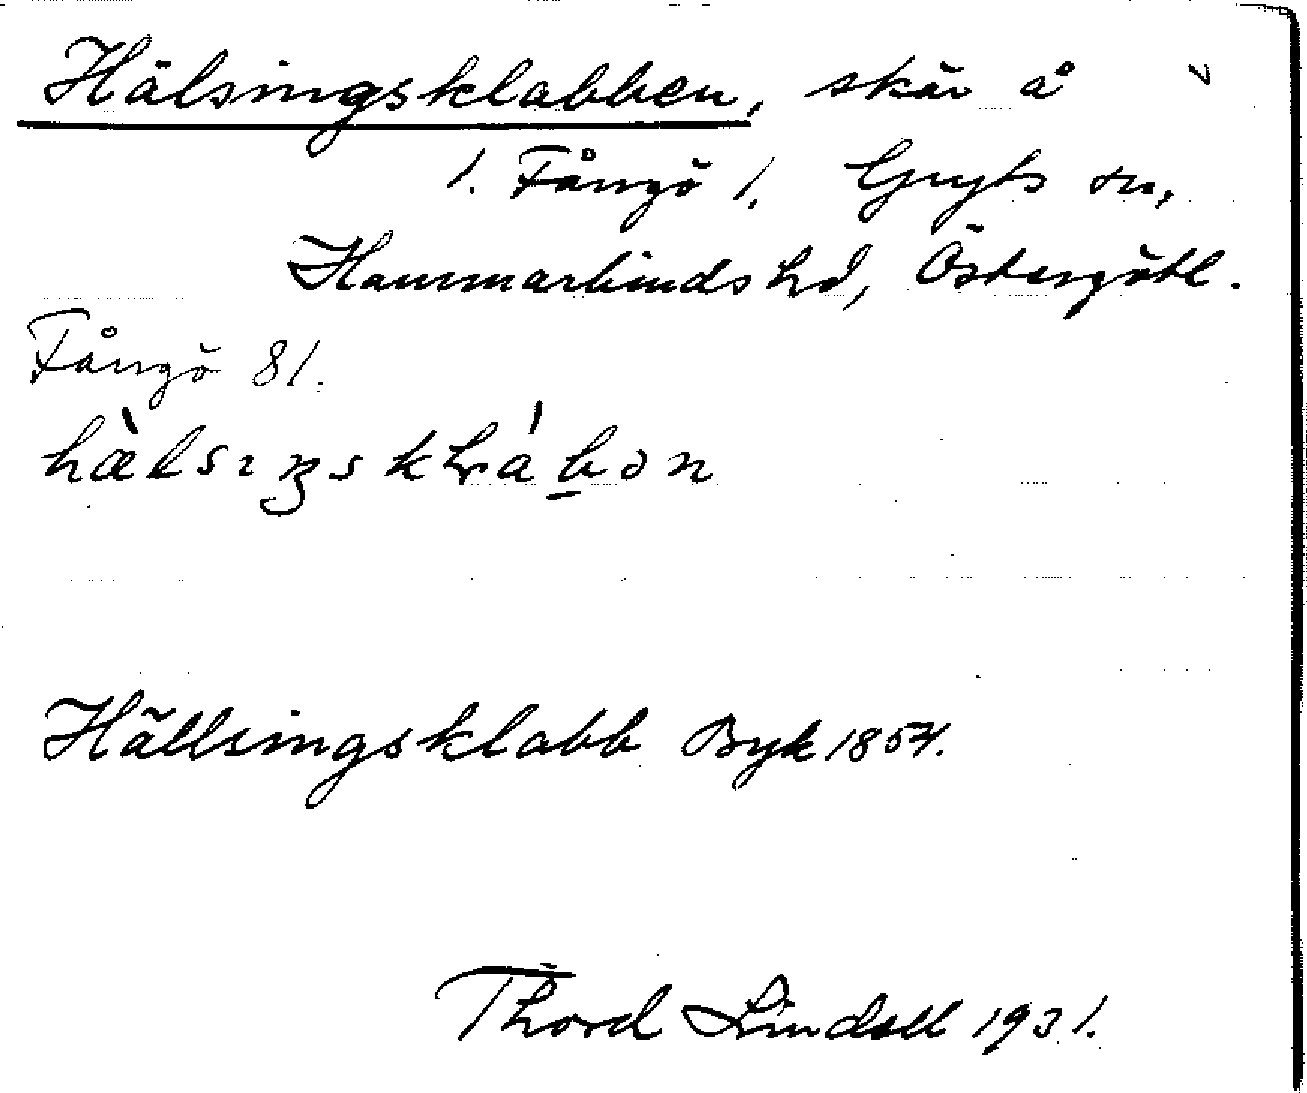 Hälsingsklabben, skär å
1. Fångö 1, Gryts sn,
Hammarkinds hd, Östergötl.
Fångö 81.
Hällsingsklabb Byk 1857.
Thord Lindell 1931.